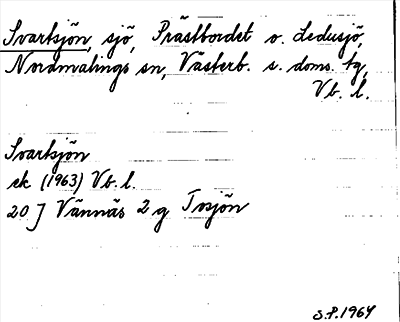 Svartsjön, sjö, Prästbordet o. Ledusjö,
Nordmalings sn, Västerb. s. doms. tg,
Vb. l.
Svartsjön
ek (1963) Vb. l.
20 J Vännäs 2 g Tvsjön
S.P. 1964